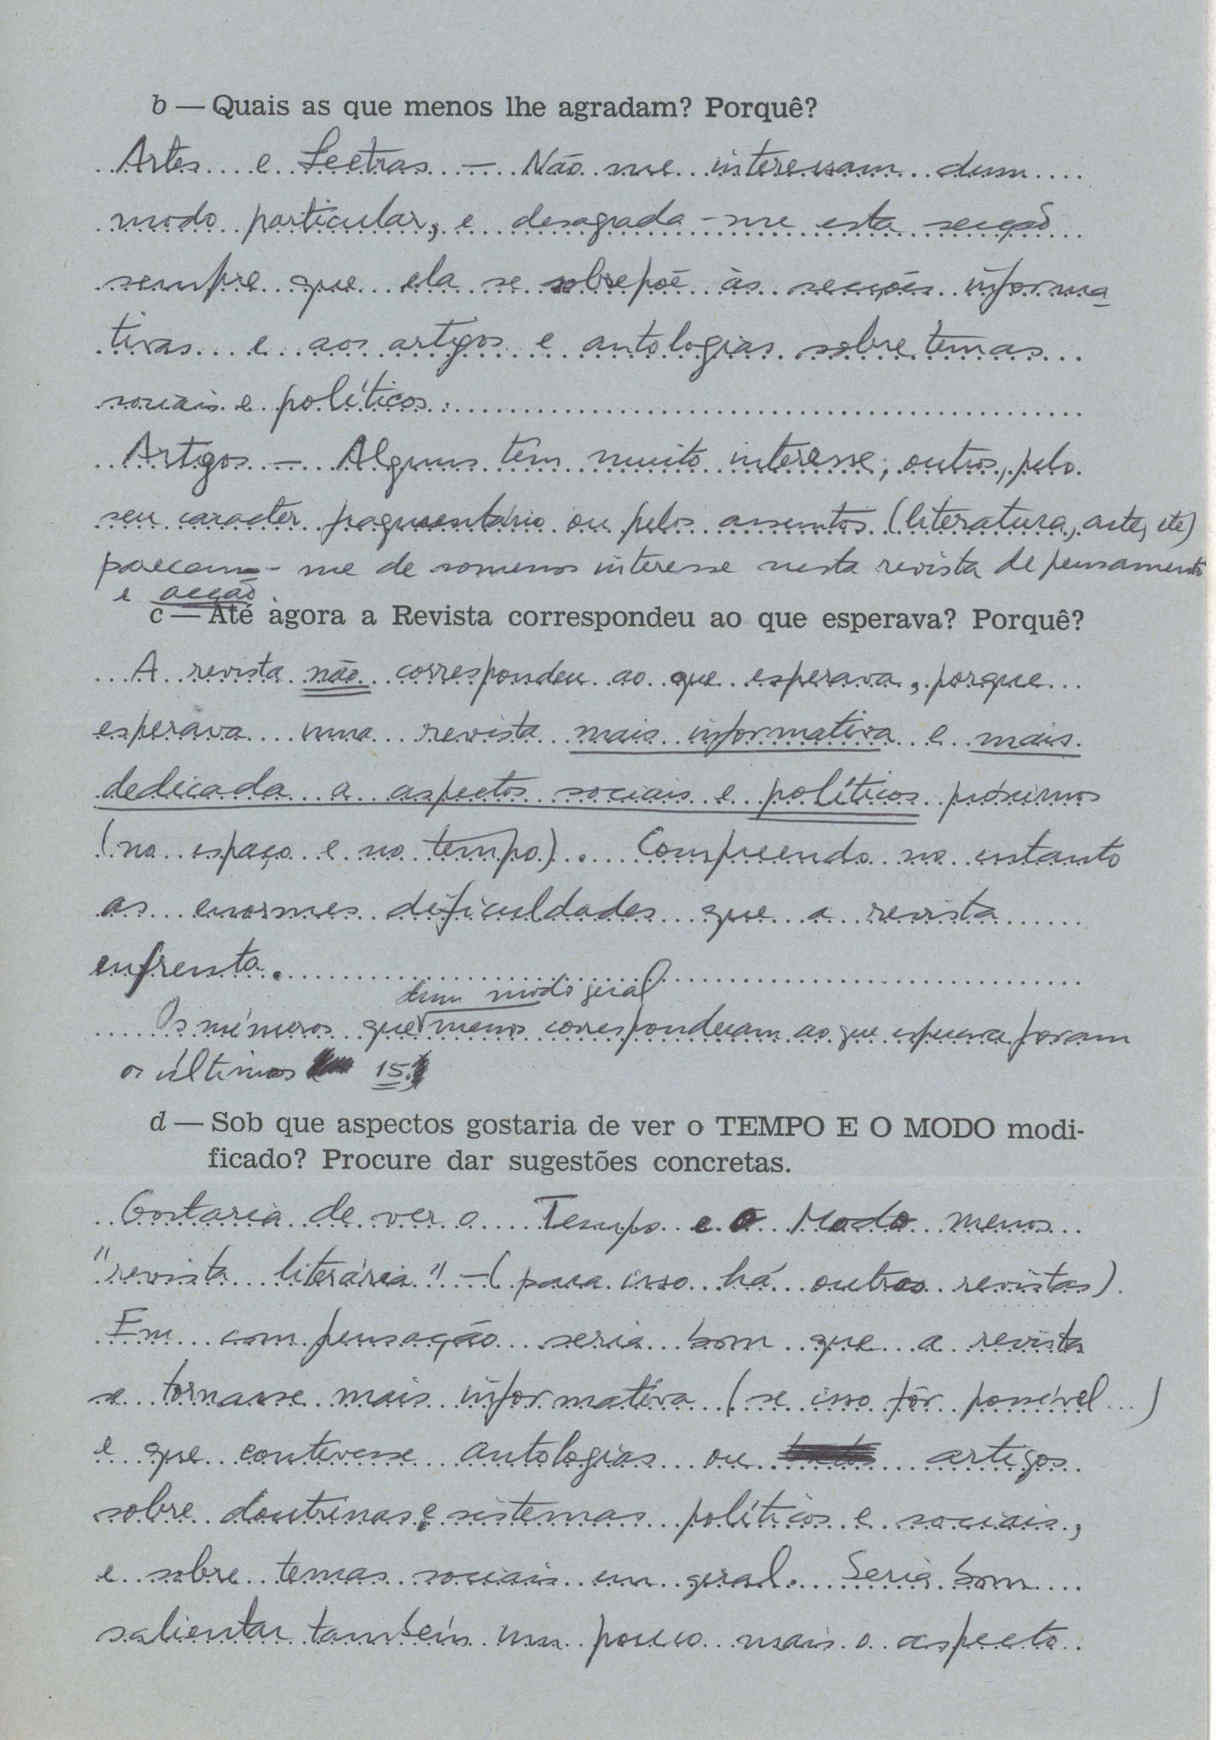 b — Quais as que menos lhe agradam? Porquê?
Artes e Lectras — Não me interessam dum
modo particular, e desagrada-me esta secção
sempre que ela se sobrepõe às secções informa
tivas e aos artigos e antologias sobre temas
sociais e políticos.
Artigos — Alguns têm muito interesse, outros, pelo
seu caracter fragmentário ou pelos assuntos (literatura, arte, etc)
parecem-me de somenos interesse nesta revista de pensamento
e acção.
c — Até agora a Revista correspondeu ao que esperava? Porquê?
A revista não correspondeu ao que esperava, porque
esperava uma revista mais informativa e mais
dedicada a aspectos sociais e políticos próximos
(no espaço e no tempo). Compreendo no entanto
as enormes dificuldades que a revista
enfrenta.
dum modo geral
Os números que menos corresponderam ao que esperava foram
os últimos 15.
d — Sob que aspectos gostaria de ver o TEMPO E O MODO modi-
ficado? Procure dar sugestões concretas.
Gostaria de ver o Tempo e O Modo menos
"revista literária" — (para isso há outras revistas).
Em compensação seria bom que a revista
se tornasse mais informativa (se isso fôr possível...)
e que contivesse antologias ou artigos
sobre doutrinas e sistemas políticos e sociais,
e sobre temas sociais em geral. Seria bom
salientar também um pouco mais o aspecto